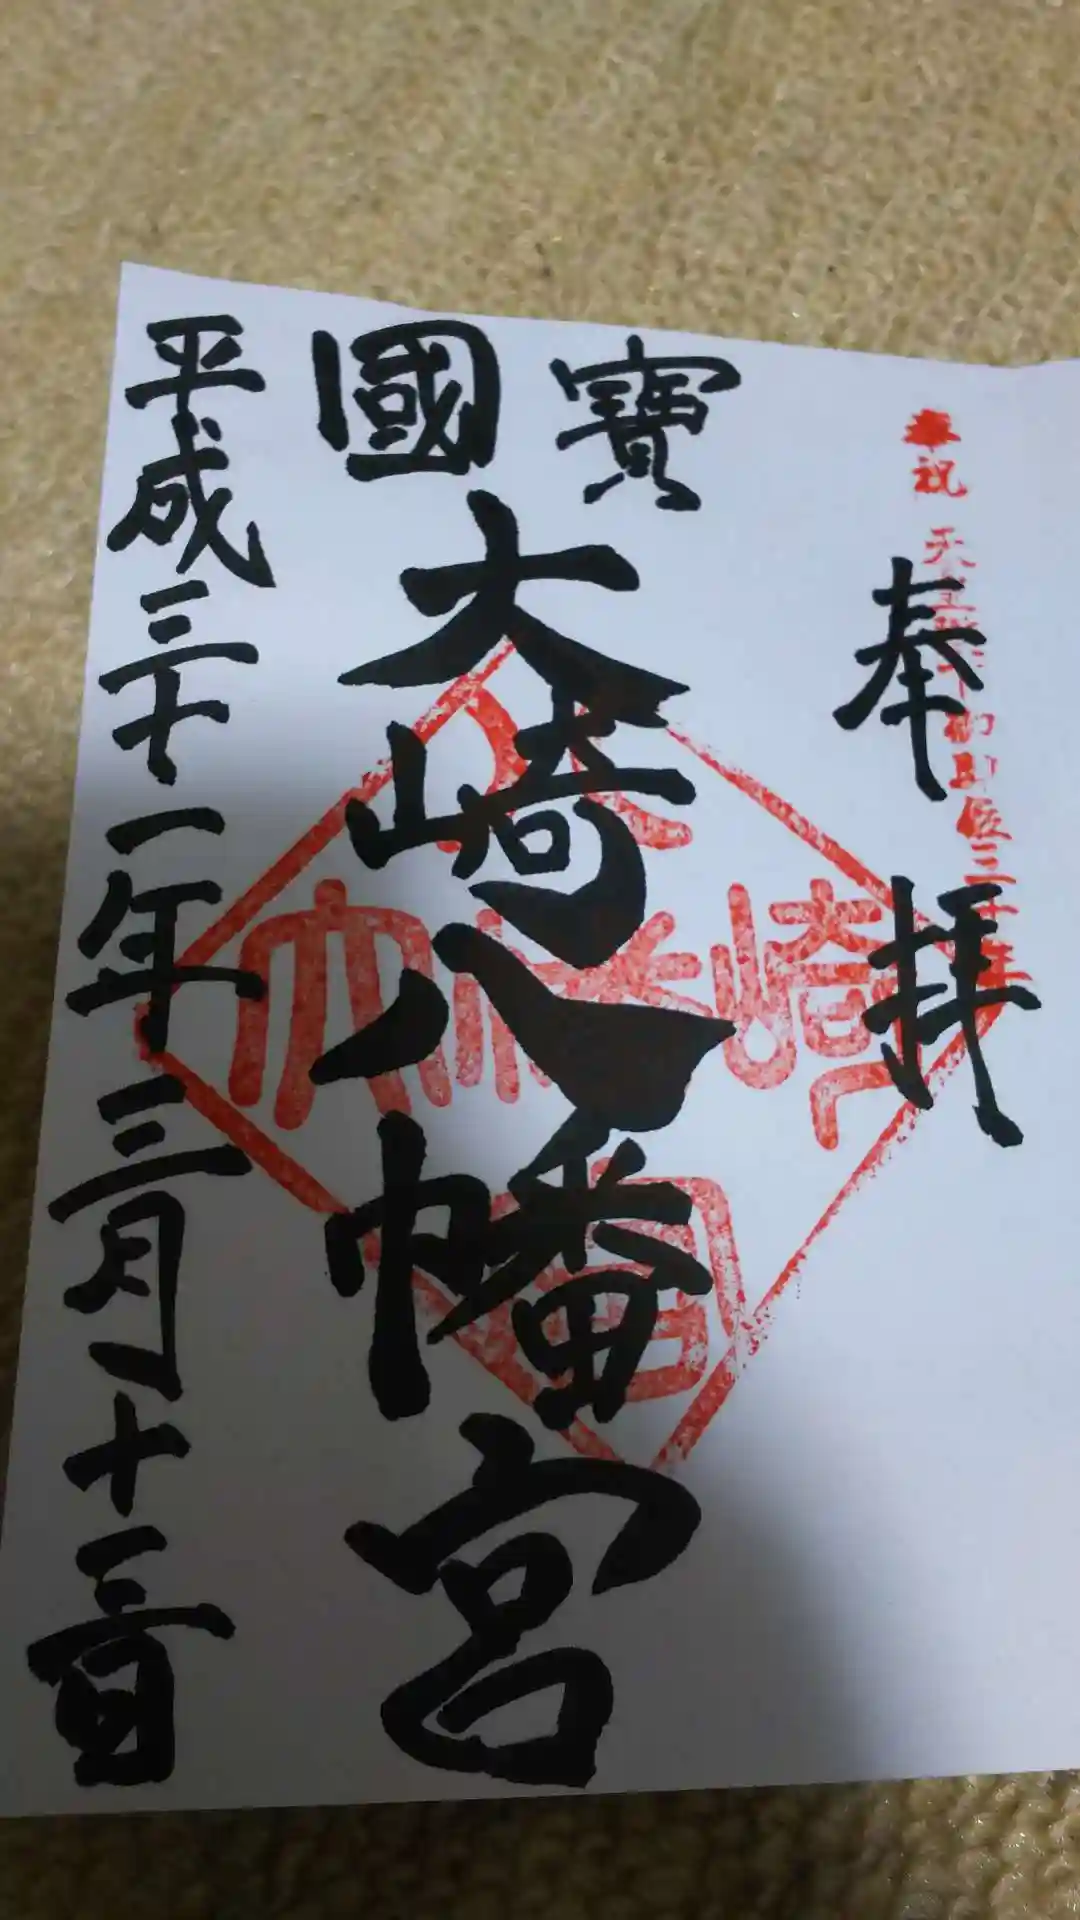 奉祝 天皇陛下御即位三十年
奉拝
國寶
大崎八幡宮
平成三十一年三月十三日